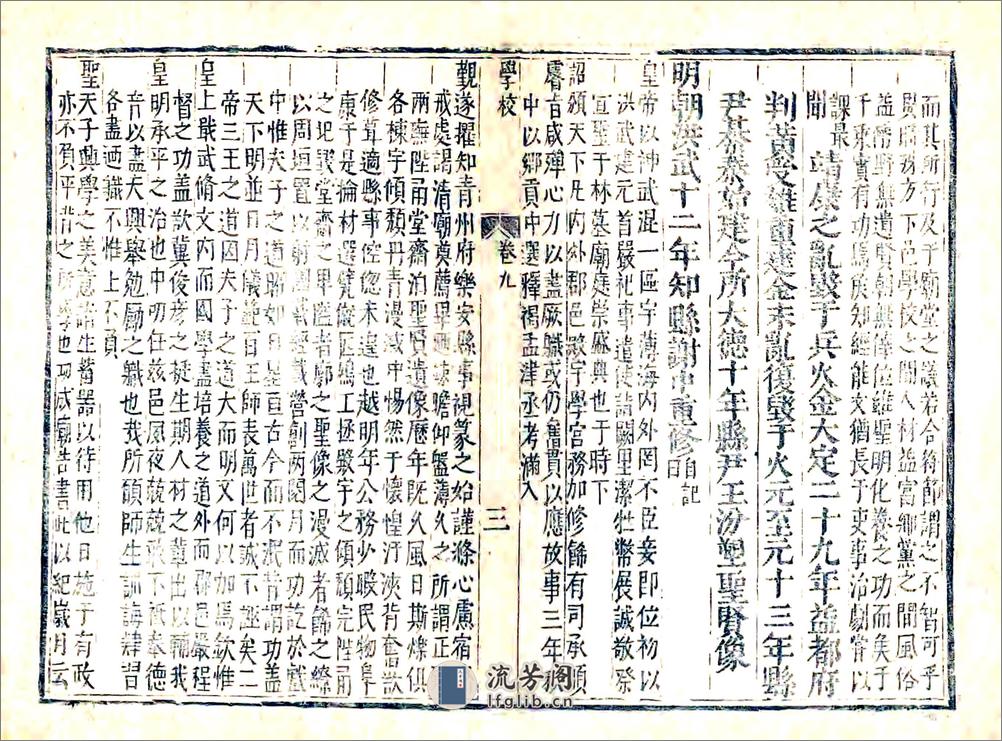 而其所行及乎廟堂之議若合符節謂之不智可乎
異日移方下邑學校之間人材益富鄉黨之間風俗
益淳野無遺賢朝無倖位維聖明化養之功而矣于
千乘實有功焉庶知經能文猶長于吏事治劇嘗以
課最
聞靖康之亂毀于兵火金大定二十九年益都府
判黃受維重建金末亂復毀于火元至元十三年縣
尹綦泰始建今所大德十年縣尹王汾塑聖賢像
明朝洪武十二年知縣謝中重修自記
皇帝以神武混一區宇薄海內外罔不臣妾即位初以
洪武建元首嚴祀事遣使詣闕里潔牲幣展誠敬祭
宣聖于林墓廟庭崇厥興也于時下
詔頒天下凡內外郡邑黌宇學宮務加修飾有司承順
睿旨咸殫心力以盡厥職或仍舊貫以應故事三年
中以鄉貢中選釋褐孟津丞考滿入
學校
卷九
三
覲遂擢知青州府樂安縣事視篆之始謹滌心慮宿
戒處謁清廟奠薦畢趨
瞻仰盤薄久之所謂正殿
兩廡陛甬堂齋泊聖賢遺像歷年既久風日斯爍俱
各棟宇傾頹丹青漫滅中惕然于懷惶汗浹背奮欲
修葺適縣事倥傯未遑也越明年公務少暇民物阜
康于是掄材選甓僦匠鳩工拯殿宇之傾頹完陛甬
之圮毀堂齋之卑隘者廓之聖像之漫滅者飾之繚
以周垣置以朝
營創兩閱月而功訖於戲
中惟夫子之道昭如日星亘古今而不泯昔謂功蓋
天下明並日月儀範百王師表萬世者誠不誣矣二
帝三王之道因夫子之道大而明文何以加焉欽惟
皇上戢武脩文內而國學盡培養之道外而郡邑嚴程
督之功蓋欲冀俊彥之挺生期人材之輩出以輔我
皇明承平之治也中叨任茲邑夙夜兢兢承下祇奉德
音以盡夫興舉勉勵之職也我所願師生訓誨肄習
各盡迺職不惟上不負
聖天子興學之美意諸生蓄器以待用他日施于有政
亦不負平昔之所學也功成廟告書此以紀歲月云
流芳阁
lfglib.cn